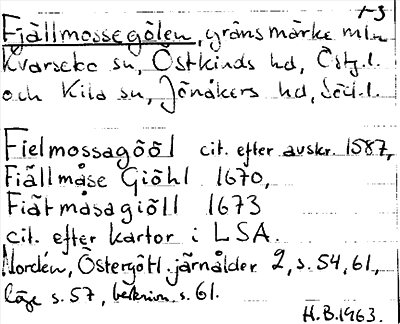 1-3
Fjällmossegölen, gränsmärke mln
Kvarsebo sn, Östkinds hd, Östg.l.
och Kila sn, Jönåkers hd, Söd.l.
Fielmossagööl cit. efter avskr. 1587,
Fiällmåse Giöhl 1670,
Fiätmåsagiöll 1673
cit. efter kartor i LSA.
Nordén, Östergötl. järnålder 2, s. 54, 61,
läge s. 57, beskrivn. s. 61.
H.B. 1963.